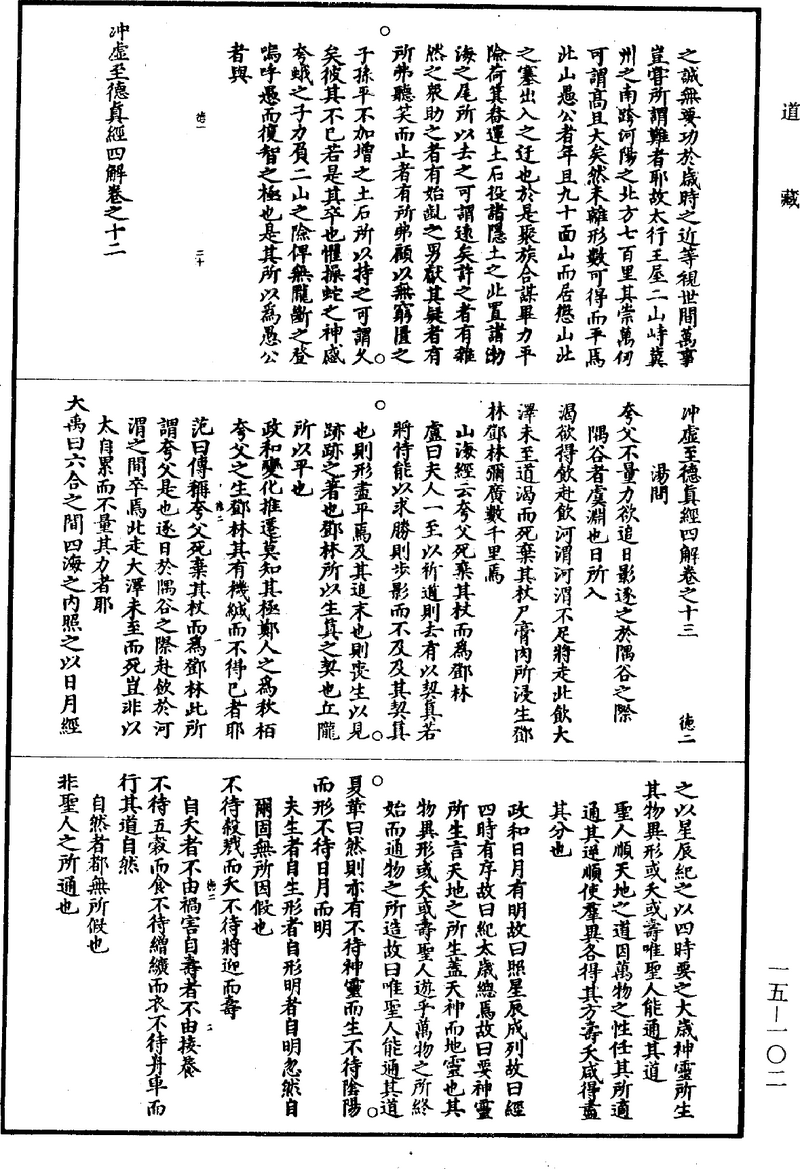 道藏
之誠無要功於歲時之近等視世間萬事
豈嘗所謂難者耶故太行王屋二山峙冀
州之南跨河陽之北方七百里其崇萬仞
可謂高且大矣然未離形數可得而平焉
北山愚公者年且九十面山而居懲山北
之塞出入之迂也於是聚族合謀畢力平
險荷箕畚運土石投諸隱土之北置諸渤
海之尾所以去之可謂遠矣許之者有雜
然之衆助之者有始齓之男獻其疑者有
所弗聽笑而止者有所弗顧以無窮匱之
子孫平不加增之土石所以持之可謂久
矣彼其不已若是其卒也懼操蛇之神感
夸蛾之子力負二山之險俾無隴斷之登
嗚呼愚而復智之極也是其所以為愚公
者與
沖虛至德眞經四解卷之十二
沖虛至德眞經四解卷之十三
德二
湯問
夸父不量力欲追日影逐之於隅谷之際
隅谷者虞淵也日所入
渴欲得飲赴飲河渭河渭不足將走北飲大
澤未至道渴而死棄其杖尸膏肉所浸生鄧
林鄧林彌廣數千里焉
山海經云夸父死棄其杖而為鄧林
盧曰夫人一至以祈道則去有以契真若
將恃能以求勝則步影而不及及其契眞
也則形盡平焉及其追末也則喪生以見
跡跡之著也鄧林所以生眞之契也丘隴
所以平也
政和變化推遷莫知其極鄭人之為秋栢
夸父之生鄧林其有機緘而不得已者耶
范曰傳稱夸父死棄其杖而為鄧林此所
謂夸父是也逐日於隅谷之際赴飲於河
渭之間卒焉北走大澤未至而死豈非以
太自累而不量其力者耶
大禹曰六合之間四海之內照之以日月經
之以星辰紀之以四時要之大歲神靈所生
其物異形或夭或壽唯聖人能通其道
聖人順天地之道因萬物之性任其所適
通其逆順使羣異各得其方壽夭咸得盡
其分也
政和日月有明故曰照星辰成列故曰經
四時有序故曰紀太歲總焉故曰要神靈
所生言天地之所生蓋天神而地靈也其
物異形或夭或壽聖人遊乎萬物之所終
始而通物之所造故曰唯聖人能通其道
夏革曰然則亦有不待神靈而生不待陰陽
而形不待日月而明
夫生者自生形者自形明者自明忽然自
爾固無所因假也
不待殺戮而夭不待將迎而壽
自夭者不由禍害自壽者不由接養
不待五穀而食不待繒纊而衣不待舟車而
行其道自然
自然者都無所假也
非聖人之所通也
一五－一〇二